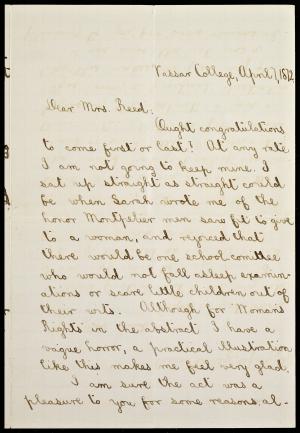 Vassar College, April 7, 1872
Dear Mrs. Reed:
Ought congratulations
to come first or last? At any rate
I am not going to keep mine. I
sat up straight as straight could
be when Sarah wrote me of the
honor Montpelier men saw fit to give
to a woman, and rejoiced that
there would be one school-comittee
who would not fall asleep examin-
ations or scare little children out of
their wits. Although for Womans
Rights in the abstract I have a
vague horror, a practical illustration
like this makes me feel very glad.
I am sure the act was a
pleasure to you for some reasons, al-